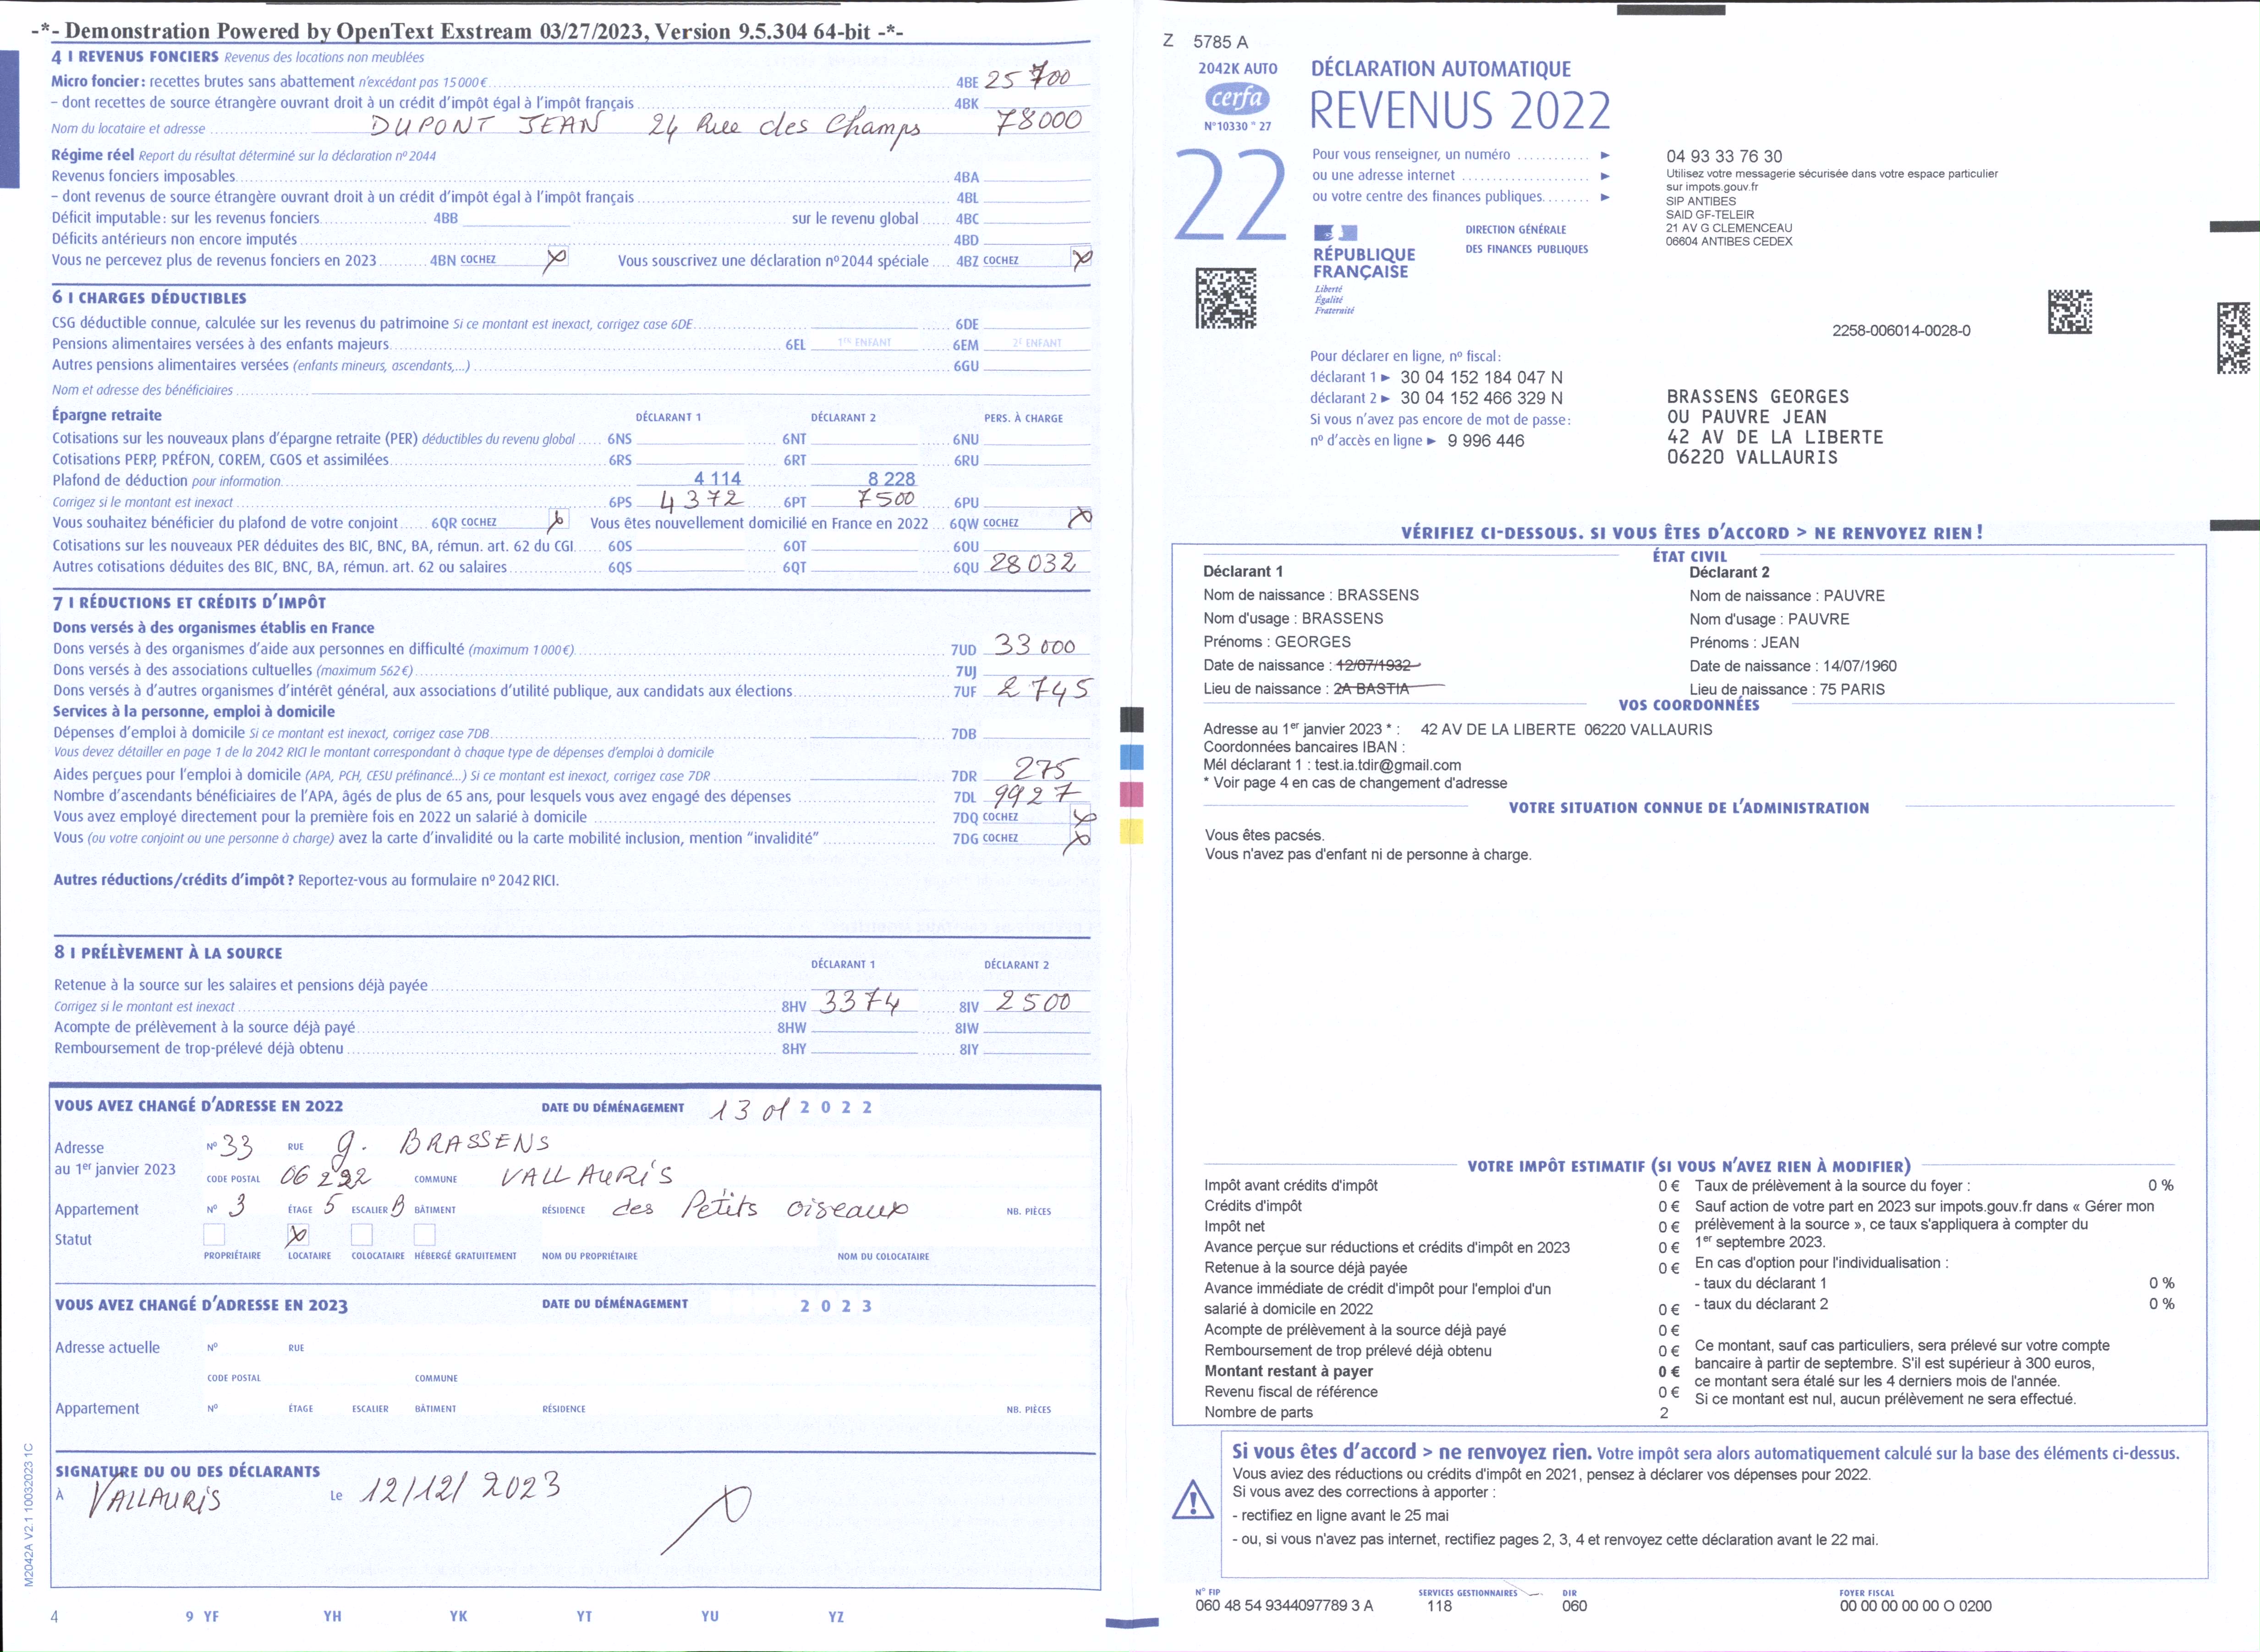 -*- Demonstration Powered by OpenText Exstream 03/27/2023, Version 9.5.304 64-bit -*-
4 I REVENUS FONCIERS Revenus des locations non meublées
Micro foncier : recettes brutes sans abattement n'excédant pas 15 000 € 4BE 25 700
– dont recettes de source étrangère ouvrant droit à un crédit d'impôt égal à l'impôt français 4BK 78000
Nom du locataire et adresse DUPONT JEAN 24 Rue des Champs
Régime réel Report du résultat déterminé sur la déclaration nº 2044
Revenus fonciers imposables 4BA
– dont revenus de source étrangère ouvrant droit à un crédit d'impôt égal à l'impôt français 4BL
Déficit imputable : sur les revenus fonciers 4BB sur le revenu global 4BC
Déficits antérieurs non encore imputés 4BD
Vous ne percevez plus de revenus fonciers en 2023 4BN COCHEZ X Vous souscrivez une déclaration nº 2044 spéciale 4BZ COCHEZ X
6 I CHARGES DÉDUCTIBLES
CSG déductible connue, calculée sur les revenus du patrimoine Si ce montant est inexact, corrigez case 6DE 6DE
Pensions alimentaires versées à des enfants majeurs 6EL 1ER ENFANT 6EM 2E ENFANT
Autres pensions alimentaires versées (enfants mineurs, ascendants,...) 6GU
Nom et adresse des bénéficiaires
Épargne retraite DÉCLARANT 1 DÉCLARANT 2 PERS. À CHARGE
Cotisations sur les nouveaux plans d'épargne retraite (PER) déductibles du revenu global 6NS 6NT 6NU
Cotisations PERP, PRÉFON, COREM, CGOS et assimilées 6RS 6RT 6RU
Plafond de déduction pour information 4 114 8 228
Corrigez si le montant est inexact 6PS 4372 6PT 7500 6PU
Vous souhaitez bénéficier du plafond de votre conjoint 6QR COCHEZ X Vous êtes nouvellement domicilié en France en 2022 6QW COCHEZ X
Cotisations sur les nouveaux PER déduites des BIC, BNC, BA, rémun. art. 62 du CGI 6OS 6OT 6OU
Autres cotisations déduites des BIC, BNC, BA, rémun. art. 62 ou salaires 6QS 6QT 6QU 28032
7 I RÉDUCTIONS ET CRÉDITS D'IMPÔT
Dons versés à des organismes établis en France
Dons versés à des organismes d'aide aux personnes en difficulté (maximum 1 000 €) 7UD 33 000
Dons versés à des associations cultuelles (maximum 562 €) 7UJ
Dons versés à d'autres organismes d'intérêt général, aux associations d'utilité publique, aux candidats aux élections 7UF 2745
Services à la personne, emploi à domicile
Dépenses d'emploi à domicile Si ce montant est inexact, corrigez case 7DB 7DB
Vous devez détailler en page 1 de la 2042 RICI le montant correspondant à chaque type de dépenses d'emploi à domicile
Aides perçues pour l'emploi à domicile (APA, PCH, CESU préfinancé...) Si ce montant est inexact, corrigez case 7DR 7DR 275
Nombre d'ascendants bénéficiaires de l'APA, âgés de plus de 65 ans, pour lesquels vous avez engagé des dépenses 7DL 9927
Vous avez employé directement pour la première fois en 2022 un salarié à domicile 7DQ COCHEZ X
Vous (ou votre conjoint ou une personne à charge) avez la carte d'invalidité ou la carte mobilité inclusion, mention "invalidité" 7DG COCHEZ X
Autres réductions/crédits d'impôt ? Reportez-vous au formulaire nº 2042 RICI.
8 I PRÉLÈVEMENT À LA SOURCE
DÉCLARANT 1 DÉCLARANT 2
Retenue à la source sur les salaires et pensions déjà payée
Corrigez si le montant est inexact 8HV 3374 8IV 2500
Acompte de prélèvement à la source déjà payé 8HW 8IW
Remboursement de trop-prélevé déjà obtenu 8HY 8IY
VOUS AVEZ CHANGÉ D'ADRESSE EN 2022 DATE DU DÉMÉNAGEMENT 13 01 2022
Adresse Nº 33 RUE g. BRASSENS
au 1er janvier 2023 CODE POSTAL 06222 COMMUNE VALLAURIS
Appartement Nº 3 ÉTAGE 5 ESCALIER B BÂTIMENT RÉSIDENCE des Petits oiseaux NB. PIÈCES
Statut X
PROPRIÉTAIRE LOCATAIRE COLOCATAIRE HÉBERGÉ GRATUITEMENT NOM DU PROPRIÉTAIRE NOM DU COLOCATAIRE
VOUS AVEZ CHANGÉ D'ADRESSE EN 2023 DATE DU DÉMÉNAGEMENT 2023
Adresse actuelle Nº RUE
CODE POSTAL COMMUNE
Appartement Nº ÉTAGE ESCALIER BÂTIMENT RÉSIDENCE NB. PIÈCES
SIGNATURE DU OU DES DÉCLARANTS
À VALLAURIS Le 12/12/2023
M2042A V2.1 10032023 1C
4 9 YF YH YK YT YU YZ
Z 5785 A
2042K AUTO
cerfa
N° 10330 * 27
DÉCLARATION AUTOMATIQUE
REVENUS 2022
22
Pour vous renseigner, un numéro ► 04 93 33 76 30
ou une adresse internet ► Utilisez votre messagerie sécurisée dans votre espace particulier
sur impots.gouv.fr
ou votre centre des finances publiques ► SIP ANTIBES
SAID GF-TELEIR
21 AV G CLEMENCEAU
06604 ANTIBES CEDEX
RÉPUBLIQUE
FRANÇAISE
Liberté
Égalité
Fraternité
DIRECTION GÉNÉRALE
DES FINANCES PUBLIQUES
2258-006014-0028-0
Pour déclarer en ligne, nº fiscal :
déclarant 1 ► 30 04 152 184 047 N
déclarant 2 ► 30 04 152 466 329 N
Si vous n'avez pas encore de mot de passe :
nº d'accès en ligne ► 9 996 446
BRASSENS GEORGES
OU PAUVRE JEAN
42 AV DE LA LIBERTE
06220 VALLAURIS
VÉRIFIEZ CI-DESSOUS. SI VOUS ÊTES D'ACCORD > NE RENVOYEZ RIEN !
ÉTAT CIVIL
Déclarant 1 Déclarant 2
Nom de naissance : BRASSENS Nom de naissance : PAUVRE
Nom d'usage : BRASSENS Nom d'usage : PAUVRE
Prénoms : GEORGES Prénoms : JEAN
Date de naissance : 12/07/1932 Date de naissance : 14/07/1960
Lieu de naissance : 2A BASTIA Lieu de naissance : 75 PARIS
VOS COORDONNÉES
Adresse au 1er janvier 2023 * : 42 AV DE LA LIBERTE 06220 VALLAURIS
Coordonnées bancaires IBAN :
Mél déclarant 1 : test.ia.tdir@gmail.com
* Voir page 4 en cas de changement d'adresse
VOTRE SITUATION CONNUE DE L'ADMINISTRATION
Vous êtes pacsés.
Vous n'avez pas d'enfant ni de personne à charge.
VOTRE IMPÔT ESTIMATIF (SI VOUS N'AVEZ RIEN À MODIFIER)
Impôt avant crédits d'impôt 0 €
Crédits d'impôt 0 €
Impôt net 0 €
Avance perçue sur réductions et crédits d'impôt en 2023 0 €
Retenue à la source déjà payée 0 €
Avance immédiate de crédit d'impôt pour l'emploi d'un
salarié à domicile en 2022 0 €
Acompte de prélèvement à la source déjà payé 0 €
Remboursement de trop prélevé déjà obtenu 0 €
Montant restant à payer 0 €
Revenu fiscal de référence 0 €
Nombre de parts 2
Taux de prélèvement à la source du foyer : 0 %
Sauf action de votre part en 2023 sur impots.gouv.fr dans « Gérer mon
prélèvement à la source », ce taux s'appliquera à compter du
1er septembre 2023.
En cas d'option pour l'individualisation :
- taux du déclarant 1 0 %
- taux du déclarant 2 0 %
Ce montant, sauf cas particuliers, sera prélevé sur votre compte
bancaire à partir de septembre. S'il est supérieur à 300 euros,
ce montant sera étalé sur les 4 derniers mois de l'année.
Si ce montant est nul, aucun prélèvement ne sera effectué.
Si vous êtes d'accord > ne renvoyez rien. Votre impôt sera alors automatiquement calculé sur la base des éléments ci-dessus.
Vous aviez des réductions ou crédits d'impôt en 2021, pensez à déclarer vos dépenses pour 2022.
Si vous avez des corrections à apporter :
- rectifiez en ligne avant le 25 mai
- ou, si vous n'avez pas internet, rectifiez pages 2, 3, 4 et renvoyez cette déclaration avant le 22 mai.
N° FIP SERVICES GESTIONNAIRES DIR FOYER FISCAL
060 48 54 9344097789 3 A 118 060 00 00 00 00 00 O 0200